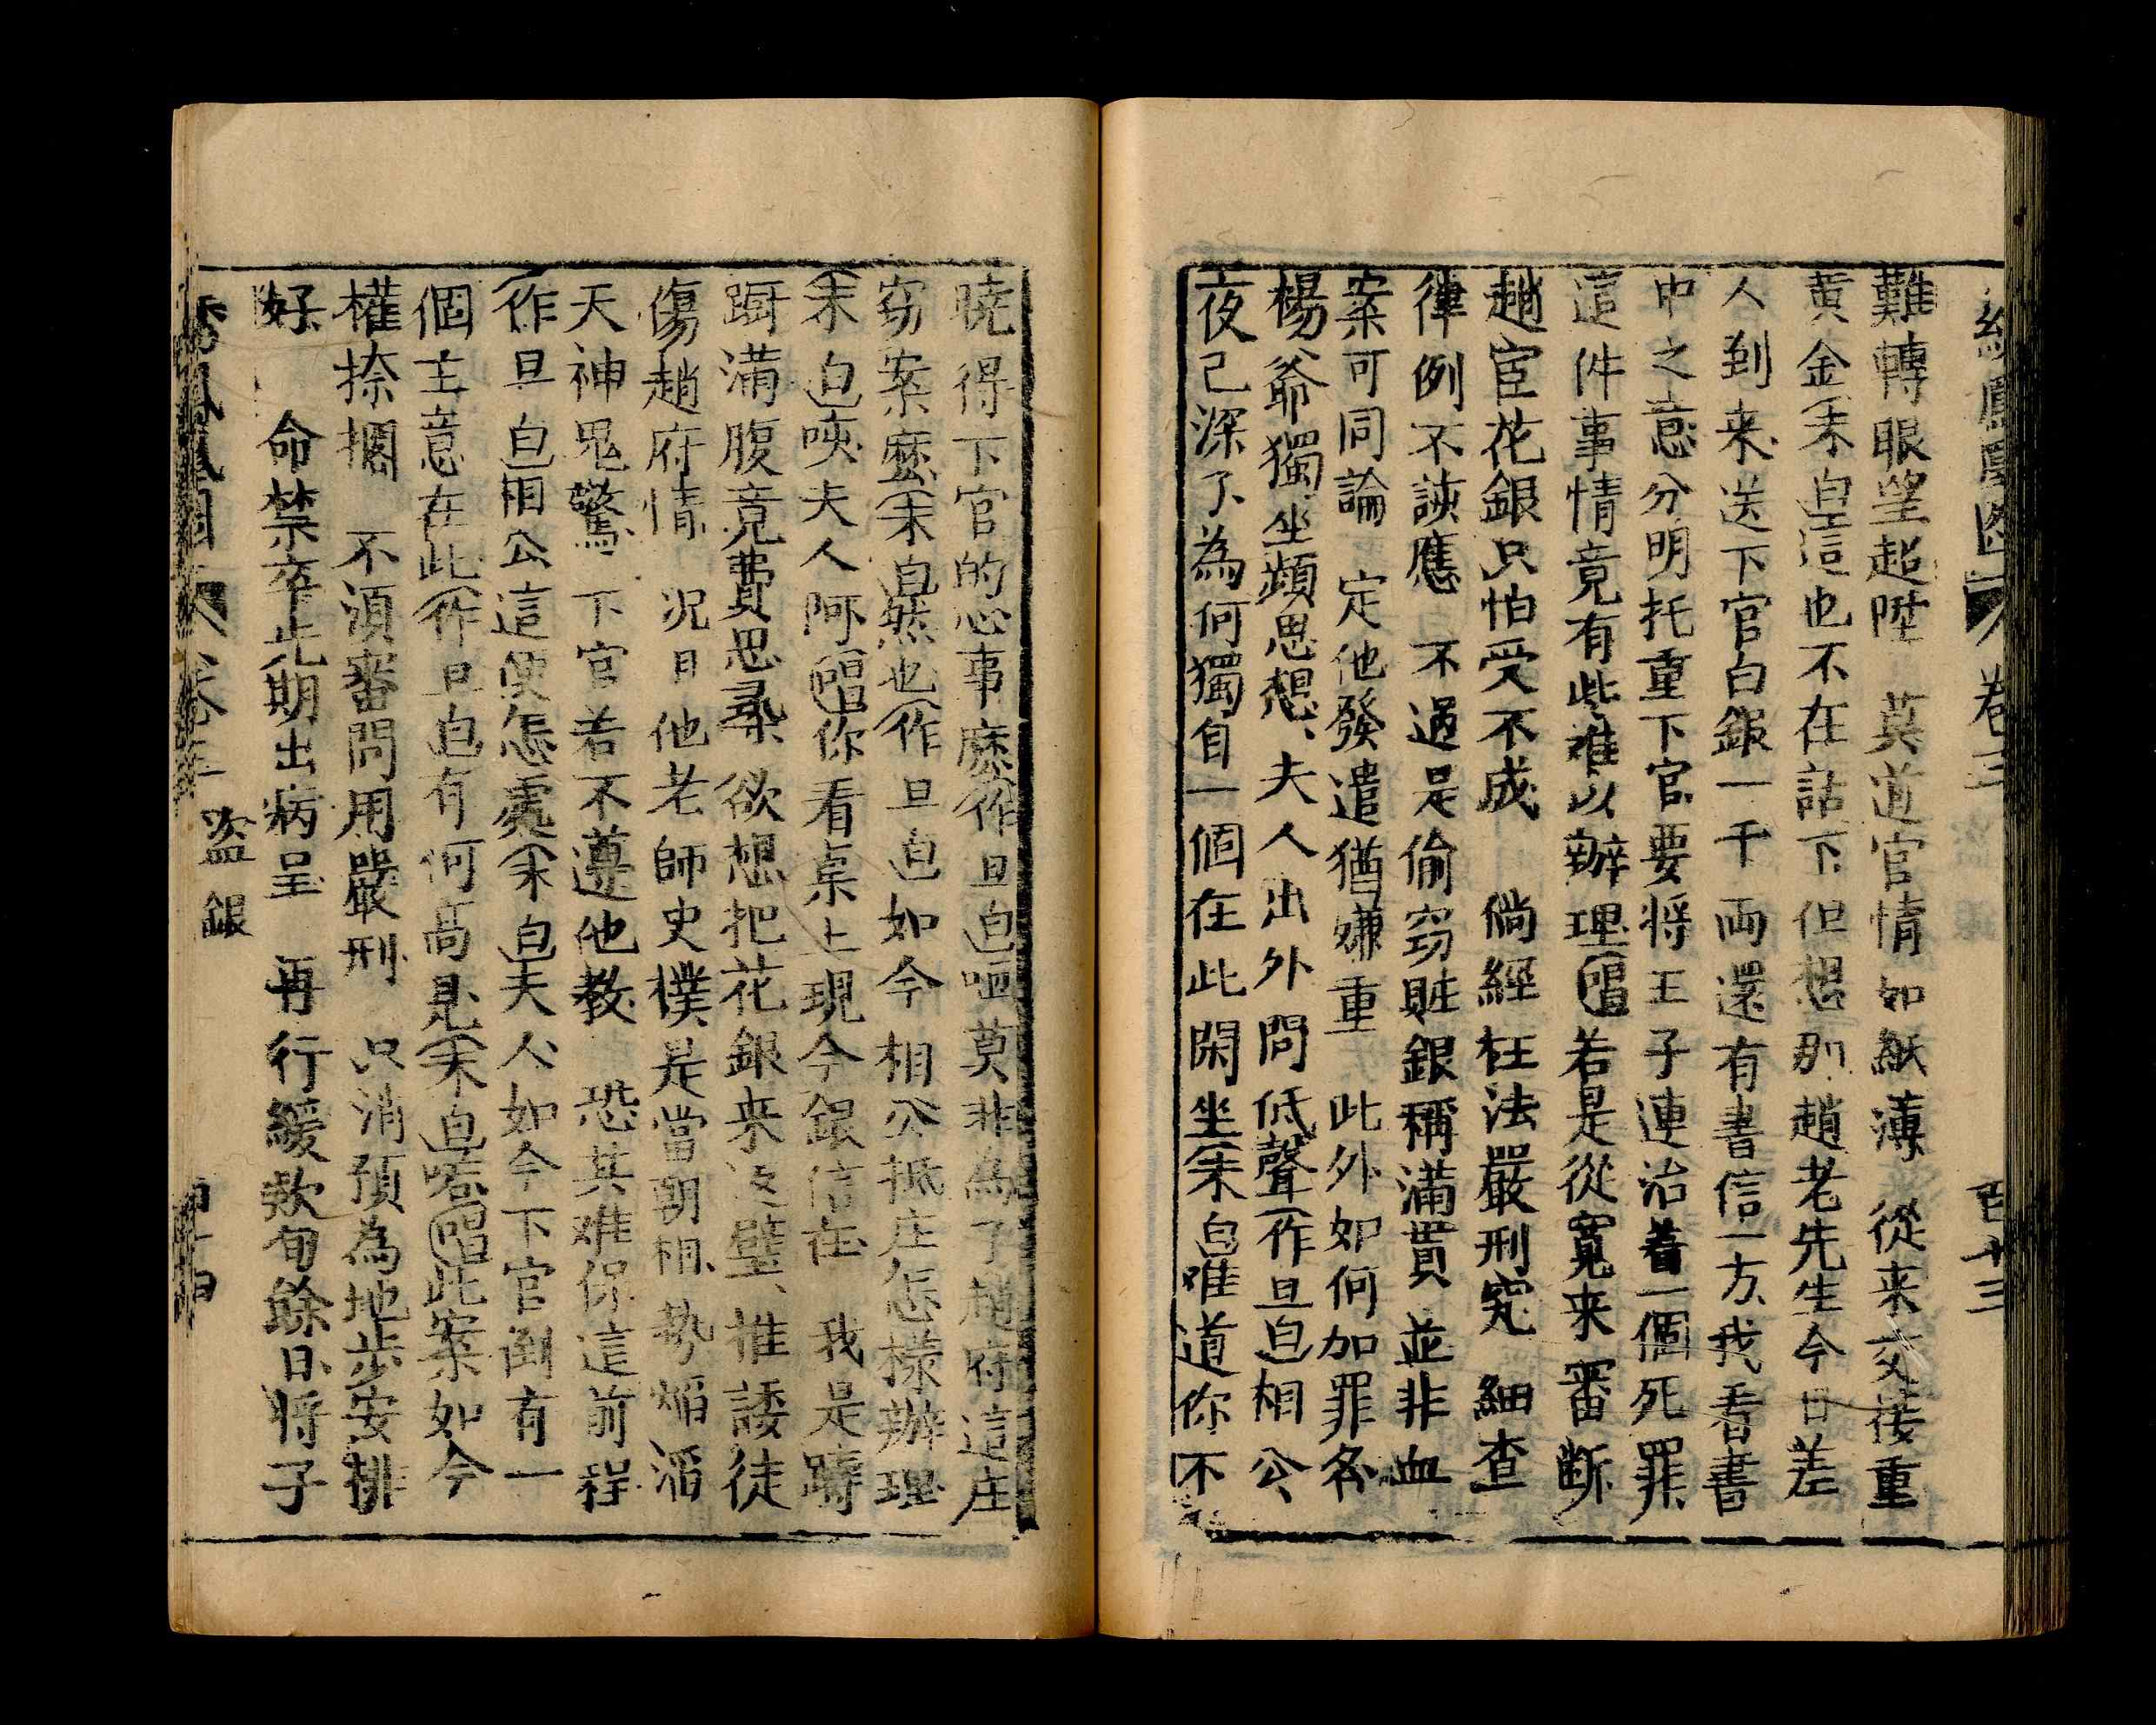 卷三 百廿三
難轉眼望超陞 莫道官情如紙薄 從来交接重
黄金(末白)這也不在話下但想那趙老先生今日差
人到来送下官白銀一千両還有書信一方我看書
中之意分明托重下官要将王子連治着一個死罪
這件事情竟有些难以辦理(唱)若是從寬来審断
趙宦花銀只怕受不成 倘經枉法嚴刑究 細查
律例不該應 不過是偷窃賍銀稱滿貫 並非血
案可同論 定他發遣猶嫌重 此外如何加罪名
楊爺獨坐頻思想、夫人出外問低聲(作旦白)相公、
夜已深了為何獨自一個在此閑坐(末白)难道你不
曉得下官的心事麽(作旦白)哂莫非為了趙府這庄
窃案麽(末白)然也(作旦白)如今相公抵庄怎樣辦理
(末白)唉夫人阿(唱)你看桌上現今銀信在 我是躊
蹰滿腹竟費思尋 欲想把花銀来返璧、推諉徒
傷趙府情 况且他老師史樸是當朝相 勢焰滔
天神鬼驚 下官若不遵他教 恐其难保這前程
(作旦白)相公這便怎處(末白)夫人如今下官倒有一
個主意在此(作旦白)有何高見(末白)喏(唱)此案如今
權捺擱 不須審問用嚴刑 只消預為地步安排
好 命禁卒先期出病呈 再行緩款旬餘日将子
鳳凰圖 卷三 盗銀